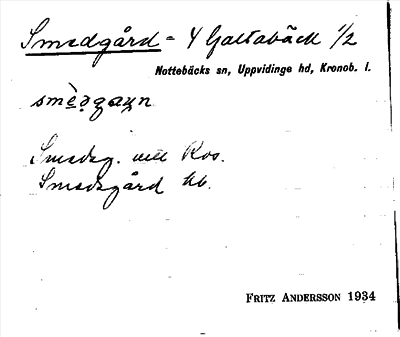 Smedgård = 4 Galtabäck 1/2
Nottebäcks sn, Uppvidinge hd, Kronob. l.
Smedsg. Ros.
Smedsgård hb.
FRITZ ANDERSSON 1934